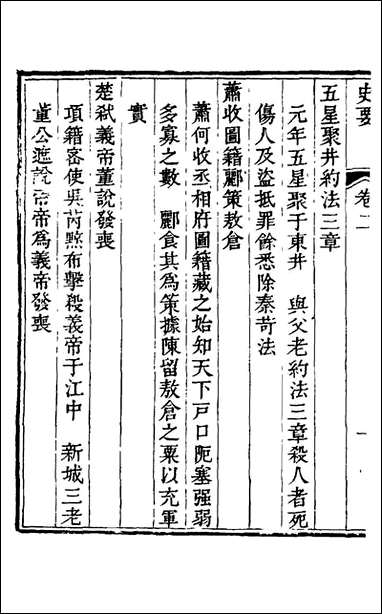 史要 卷二 一
五星聚井約法三章
元年五星聚于東井 與父老約法三章殺人者死
傷人及盜抵罪餘悉除秦苛法
蕭收圖籍酈策敖倉
蕭何收丞相府圖籍藏之始知天下戸口阨塞强弱
多寡之數 酈食其爲策據陳留敖倉之粟以充軍
實
楚弒義帝董說發喪
項籍密使吳芮黥布擊殺義帝于江中 新城三老
董公遮說帝帝爲義帝發喪